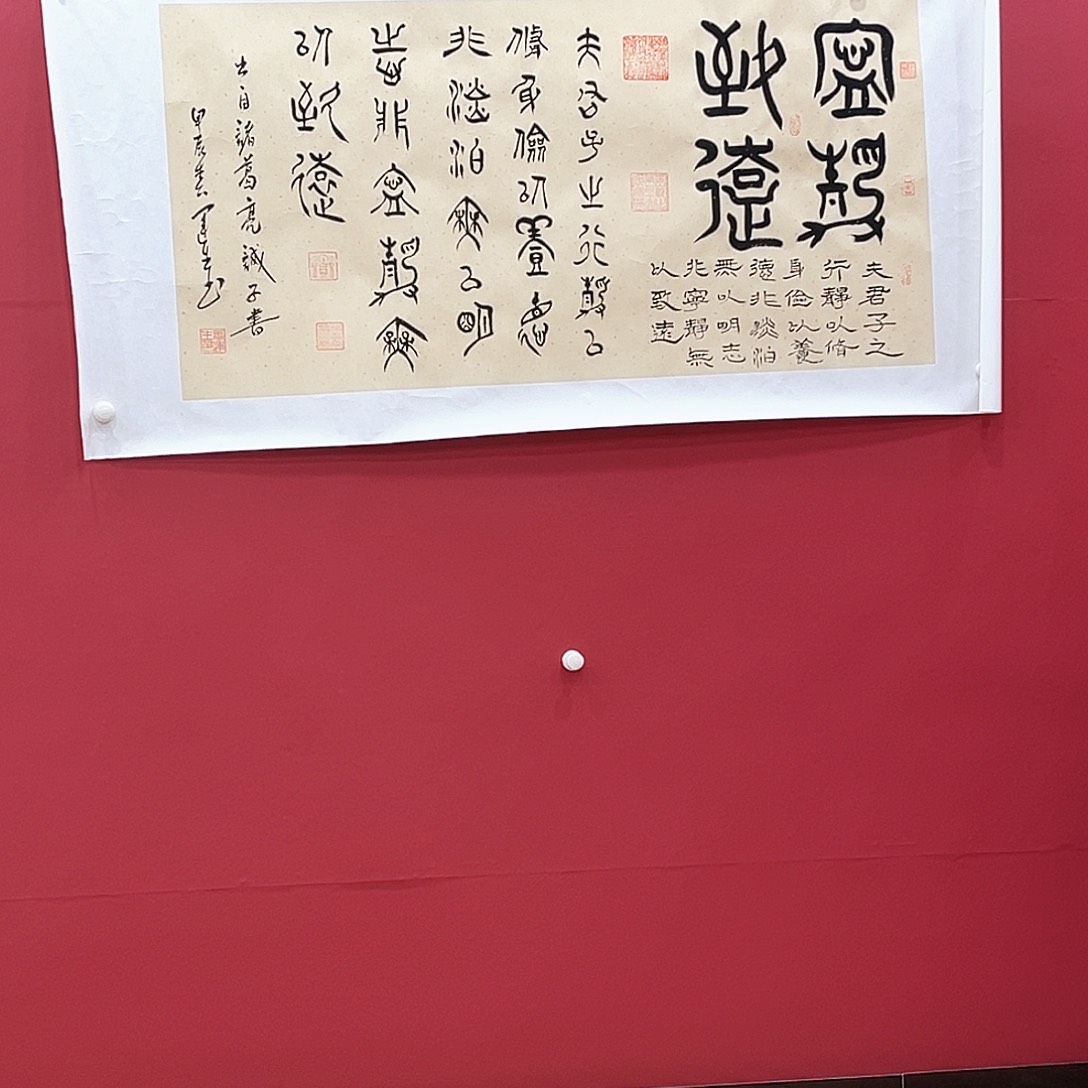 寧靜
致遠
夫君子之
行靜以脩
身俭以養
德非淡泊
無以明志
非寧靜無
以致遠
夫君子之行靜以
脩身儉以養悳
非澹泊無以明
志非寧靜無
以致遠
出自諸葛亮誡子書
甲辰